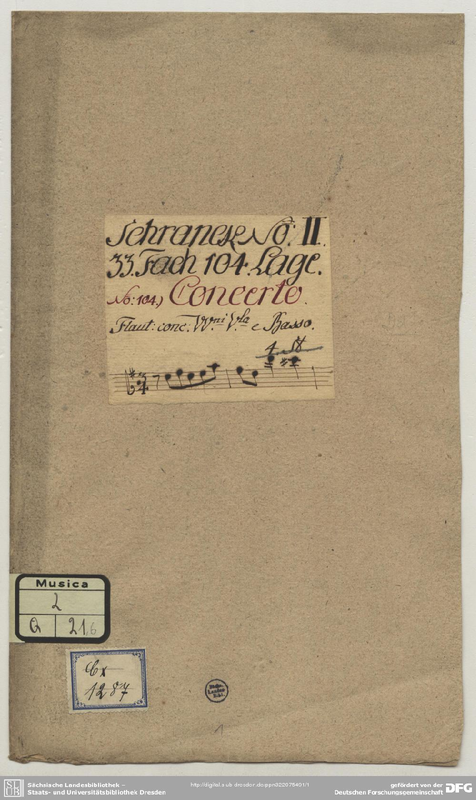 Schranck No: II.
33. Fach 104. Lage.
No: 104.) Concerto.
Flaut: conc. VVni Vla e Basso.
4 St
3
4
Musica
2
Q 21,6
Cx
1287
1
Sächsische Landesbibliothek –
Staats- und Universitätsbibliothek Dresden
gefördert von der
Deutschen Forschungsgemeinschaft
DFG